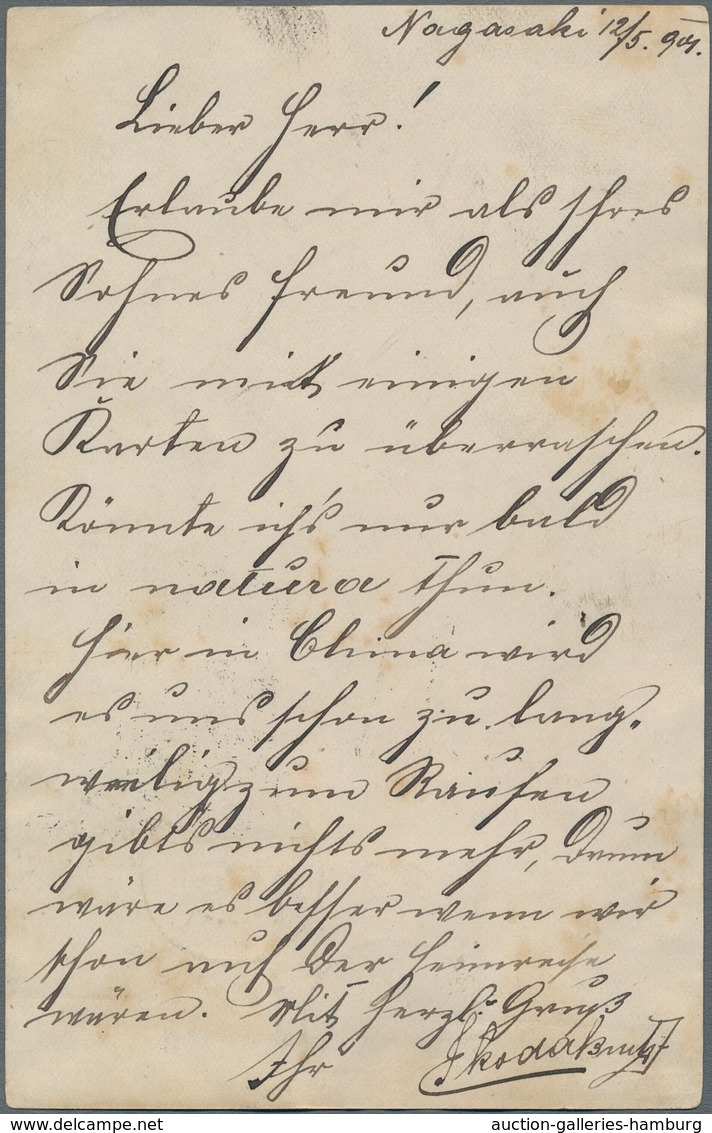 Nagasaki 12/5. 901.
Lieber Herr!
Erlaube mir als Ihres
Sohnes Freund, auch
Sie mit einigen
Karten zu überraschen.
Könnte ich's nur bald
in natura thun.
Hier in China wird
es uns schon zu lang-
weilig zum Raufen
gibts nichts mehr, drum
wäre es besser wenn wir
schon auf der Heimreise
wären. Mit herzl. Gruß
Ihr
auction-galleries-hamburg